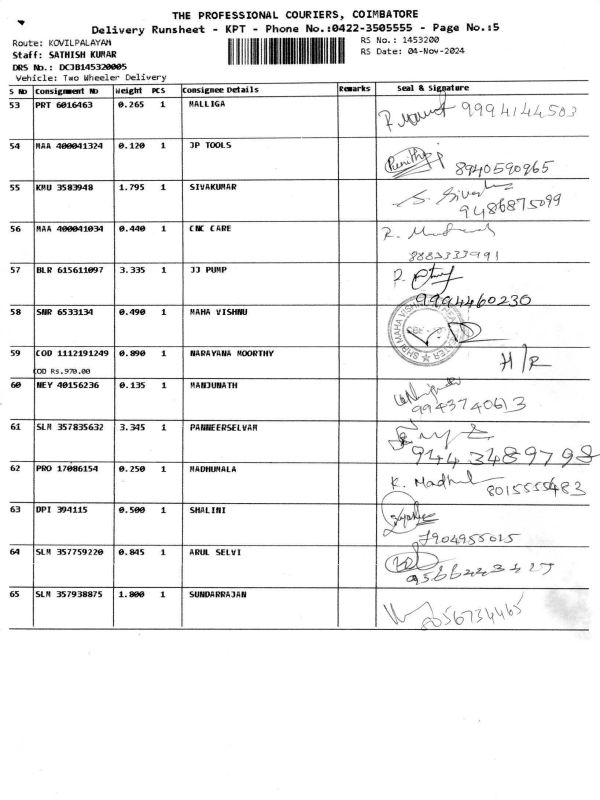 THE PROFESSIONAL COURIERS, COIMBATORE
Delivery Runsheet - KPT - Phone No.:0422-3505555 - Page No.:5
Route: KOVILPALAYAM RS No.: 1453200
Staff: SATHISH KUMAR RS Date: 04-Nov-2024
DRS No.: DCJB145320005
Vehicle: Two Wheeler Delivery
S No Consignment No Weight PCS Consignee Details Remarks Seal & Signature
53 PRT 6016463 0.265 1 MALLIGA 9994144503
54 MAA 400041324 0.120 1 JP TOOLS 8940590965
55 KMU 3583948 1.795 1 SIVAKUMAR S. 9486875099
56 MAA 400041034 0.440 1 CNC CARE R. 8883333991
57 BLR 615611097 3.335 1 JJ PUMP P. 9994460230
58 SNR 6533134 0.490 1 MAHA VISHNU SHRI MAHA
59 COD 1112191249 0.890 1 NARAYANA MOORTHY H/R
COD Rs.970.00
60 NEY 40156236 0.135 1 MANJUNATH 9943740613
61 SLM 357835632 3.345 1 PANNEERSELVAM 9443489798
62 PRO 17086154 0.250 1 MADHUMALA K. 8015555483
63 DPI 394115 0.500 1 SHALINI 7904955015
64 SLM 357759220 0.845 1 ARUL SELVI
65 SLM 357938875 1.800 1 SUNDARRAJAN